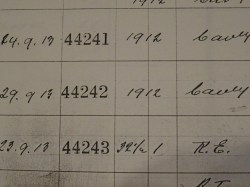 1912
24.9.13 44241 1912 Cavy
29.9.13 44242 1912 Cavy
23.9.13 44243 1 R.E.